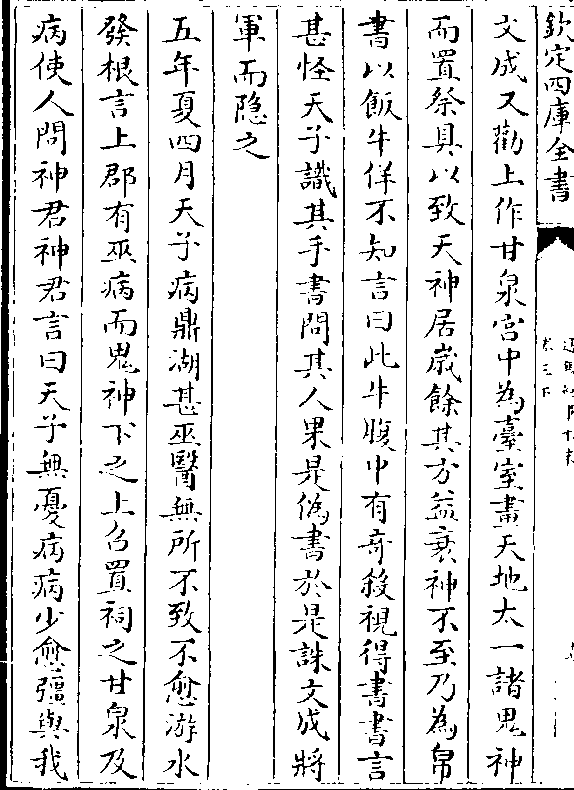 欽定四庫全書
文成又勸上作甘泉宮中為臺室畫天地太一諸鬼神
而置祭具以致天神居歲餘其方益衰神不至乃為帛
書以飯牛佯不知言曰此牛腹中有奇殺視得書書言
甚怪天子識其手書問其人果是偽書於是誅文成將
軍而隐之
五年夏四月天子病鼎湖甚巫醫無所不致不愈游水
發根言上郡有巫病而鬼神下之上召置祠之甘泉及
病使人問神君神君言曰天子無憂病病少愈彊與我